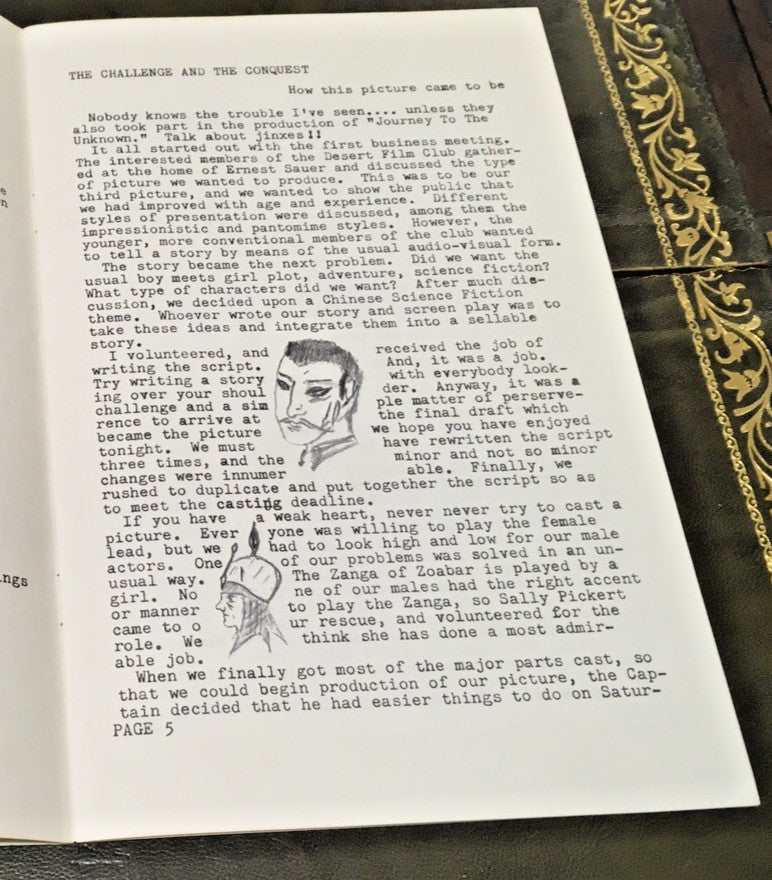 THE CHALLENGE AND THE CONQUEST
How this picture came to be
Nobody knows the trouble I've seen.... unless they
also took part in the production of "Journey To The
Unknown." Talk about jinxes!!
It all started out with the first business meeting.
The interested members of the Desert Film Club gather-
ed at the home of Ernest Sauer and discussed the type
of picture we wanted to produce. This was to be our
third picture, and we wanted to show the public that
we had improved with age and experience. Different
styles of presentation were discussed, among them the
impressionistic and pantomime styles. However, the
younger, more conventional members of the club wanted
to tell a story by means of the usual audio-visual form.
The story became the next problem. Did we want the
usual boy meets girl plot, adventure, science fiction?
What type of characters did we want? After much dis-
cussion, we decided upon a Chinese Science Fiction
theme. Whoever wrote our story and screen play was to
take these ideas and integrate them into a sellable
story.
I volunteered, and received the job of
writing the script. And, it was a job.
Try writing a story with everybody look-
ing over your shoul der. Anyway, it was a
challenge and a sim ple matter of perserve-
rence to arrive at the final draft which
became the picture we hope you have enjoyed
tonight. We must have rewritten the script
three times, and the minor and not so minor
changes were innumer able. Finally, we
rushed to duplicate and put together the script so as
to meet the casting deadline.
If you have a weak heart, never never try to cast a
picture. Ever yone was willing to play the female
lead, but we had to look high and low for our male
actors. One of our problems was solved in an un-
usual way. The Zanga of Zoabar is played by a
girl. No ne of our males had the right accent
or manner to play the Zanga, so Sally Pickert
came to o ur rescue, and volunteered for the
role. We think she has done a most admir-
able job.
When we finally got most of the major parts cast, so
that we could begin production of our picture, the Cap-
tain decided that he had easier things to do on Satur-
PAGE 5
ngs